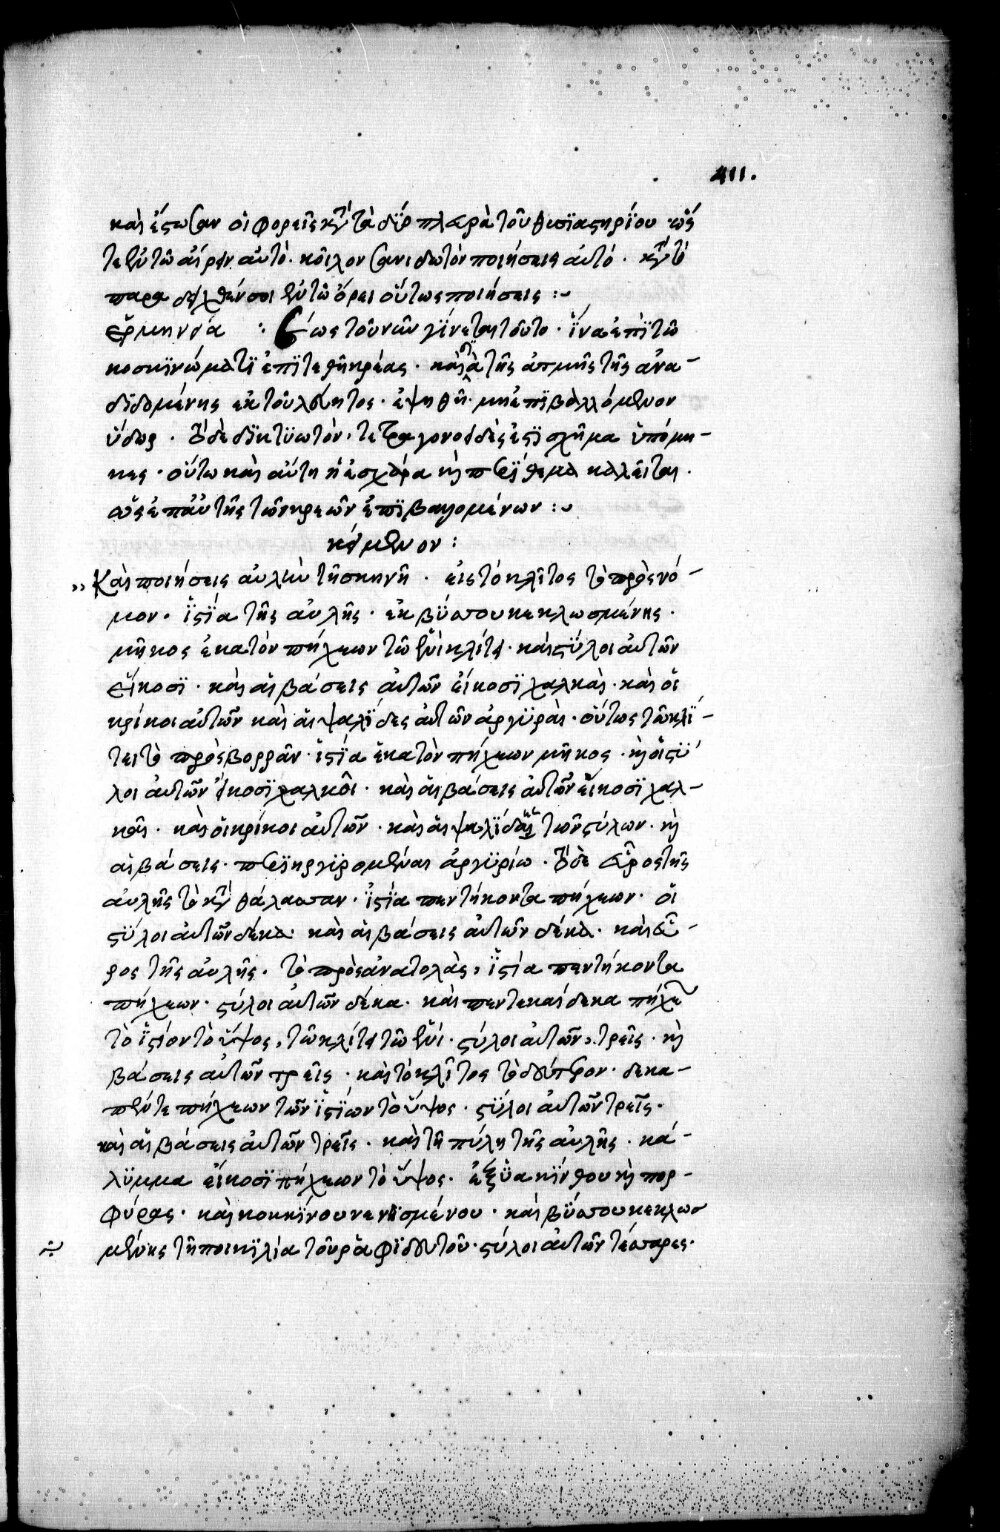 411.
καὶ ἔστωσαν οἱ φορεῖς κατὰ τὰ δύο πλευρὰ τοῦ θυσϊαστηρίου ὡς
τε ἐν τῶ αἴρειν αὐτὸ· κοῖλον σανιδωτὸν ποιήσεις αὐτό· κατὰ τὸ
παραδειχθέν σοι ἐν τῶ ὄρει οὕτως ποιήσεις :~
ἑρμηνεία : ἕως τοῦ νῦν γίνεται τοῦτο· ἵνα ἐπὶ τῶ
κοσκϊνώματϊ ἐπϊτεθῆ κρέας· καὶ διὰ τῆς ἀτμῆς τῆς ἀνα-
δϊδομένης ἐκ τοῦ λέβητος· ἑψηθῆ· μὴ ἐπϊβαλλόμενον
ὕδωρ· τὸ δὲ δϊκτϋωτόν, τετραγονοειδὲς ἐστϊ σχῆμα ὑπόμη-
κες· οὕτω καὶ αὕτη ἡ ἐσχάρα καὶ περίθεμα καλεῖται·
ὡς ἐπ' αὐτῆς τῶν κρεῶν ἐπϊβαλλομένων :~
κείμενον :
" Καὶ ποιήσεις αὐλὴν τῆ σκηνῆ· εἰς τὸ κλῖτος τὸ πρὸς νό-
μον· ἱστία τῆς αὐλῆς· ἐκ βύσσου κεκλωσμένης·
μῆκος ἑκατὸν πήχεων τῶ ἑνὶ κλίτει· καὶ στύλοι αὐτῶν
εἴκοσϊ· καὶ αἱ βάσεις αὐτῶν εἴκοσϊ χαλκαῖ· καὶ οἱ
κρίκοι αὐτῶν καὶ αἱ ψαλΐδες αὐτῶν ἀργυραῖ· οὕτως τῶ κλΐ-
τει τῶ πρὸς βορρᾶν· ἱστία ἑκατὸν πήχεων μῆκος· καὶ οἱ στύ
λοι αὐτῶν εἴκοσϊ χαλκοῖ· καὶ αἱ βάσεις αὐτῶν εἴκοσϊ χαλ-
καῖ· καὶ οἱ κρίκοι αὐτῶν· καὶ αἱ ψαλίδαις τῶν στύλων· καὶ
αἱ βάσεις· περϊηργϋρομέναι ἀργϋρίω· τὸ δὲ εὖρος τῆς
αὐλῆς τὸ κατὰ θάλασσαν· ἱστία πεντήκοντα πήχεων· οἱ
στύλοι αὐτῶν δέκα· καὶ αἱ βάσεις αὐτῶν δέκα· καὶ εὖ-
ρος τῆς αὐλῆς· τὸ πρὸς ἀνατολὰς, ἱστία πεντήκοντα
πήχεων· στύλοι αὐτῶν δέκα· καὶ πεντεκαίδεκα πήχεων
τὸ ἱστίον τὸ ὕψος, τῶ κλίτει τῶ ἑνί· στύλοι αὐτῶν, τρεῖς· καὶ
βάσεις αὐτῶν τρεῖς· καὶ τὸ κλῖτος τὸ δεύτερον· δεκα-
πέντε πήχεων τῶν ἱστίων τὸ ὕψος· στύλοι αὐτῶν τρεῖς·
καὶ αἱ βάσεις αὐτῶν τρεῖς· καὶ τῆ πύλη τῆς αὐλῆς· κά-
λϋμμα εἴκοσϊ πήχεων τὸ ὕψος· ἐξ ὑακΐνθου καὶ πορ-
φύρας· καὶ κοκκΐνου νενησμένου· καὶ βύσσου κεκλωσ
μένης τῆ ποικϊλία τοῦ ῥαφϊδευτοῦ· στύλοι αὐτῶν τέσσαρες·